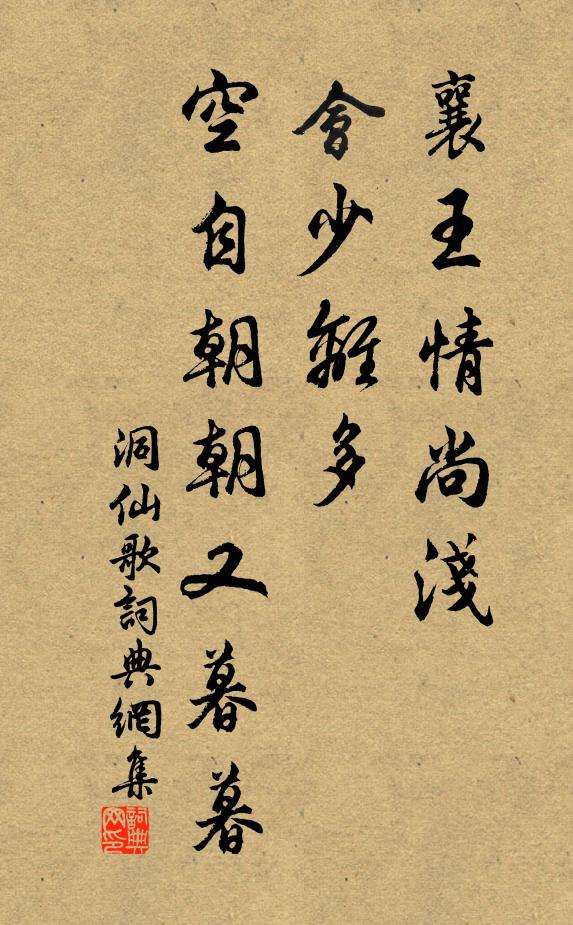 襄王情尚淺
會少離多
空自朝朝又暮暮
洞仙歌詞典網集
詞典网印